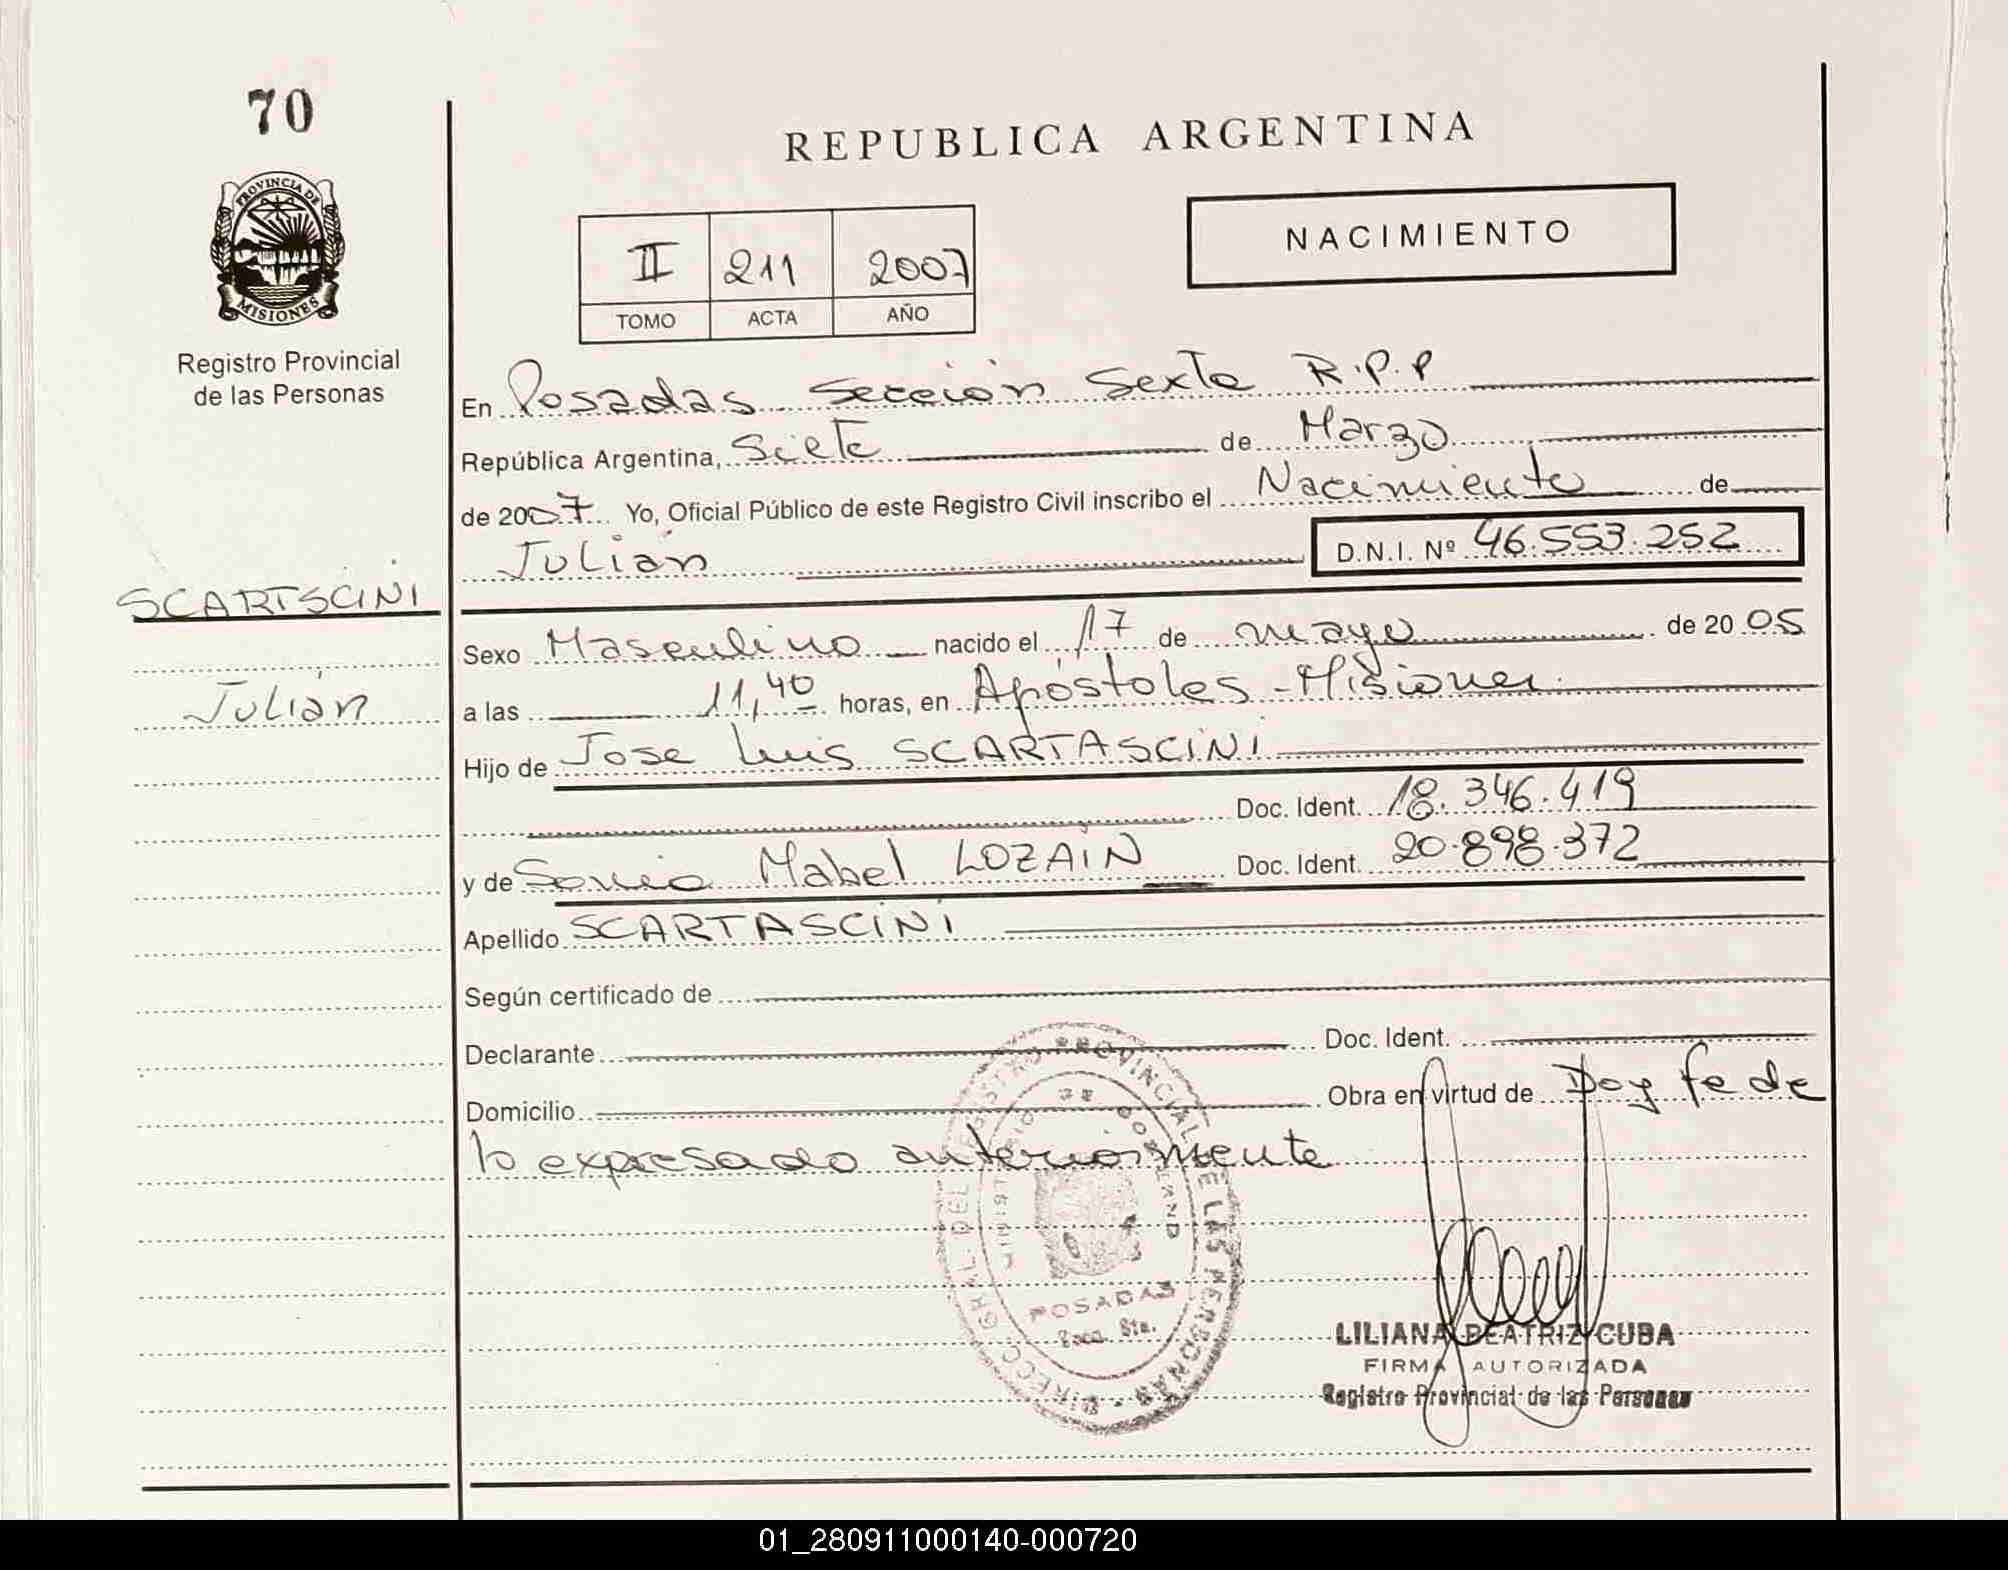 70
PROVINCIA DE
MISIONES
Registro Provincial
de las Personas
SCARTSCINI
Julián
REPUBLICA ARGENTINA
II 211 2007
TOMO ACTA AÑO
NACIMIENTO
En Posadas Sección Sexta R.P.P
República Argentina, Siete de Marzo
de 2007 Yo, Oficial Público de este Registro Civil inscribo el Nacimiento de
Julián D.N.I. Nº 46.553.252
Sexo Masculino nacido el 17 de mayo de 2005
a las 11,40 horas, en Apóstoles - Misiones.
Hijo de Jose Luis SCARTASCINI
Doc. Ident. 18.346.419
y de Sonia Mabel LOZAIN Doc. Ident. 20.898.372
Apellido SCARTASCINI
Según certificado de
Declarante Doc. Ident.
Domicilio Obra en virtud de Doy fe de
lo expresado anteriormente
DIRECC. GRAL. DEL REGISTRO PROVINCIAL DE LAS PERSONAS
MINISTERIO DE
POSADAS
Secc. 6ta.
LILIANA BEATRIZ CUBA
FIRMA AUTORIZADA
Registro Provincial de las Personas
01_280911000140-000720